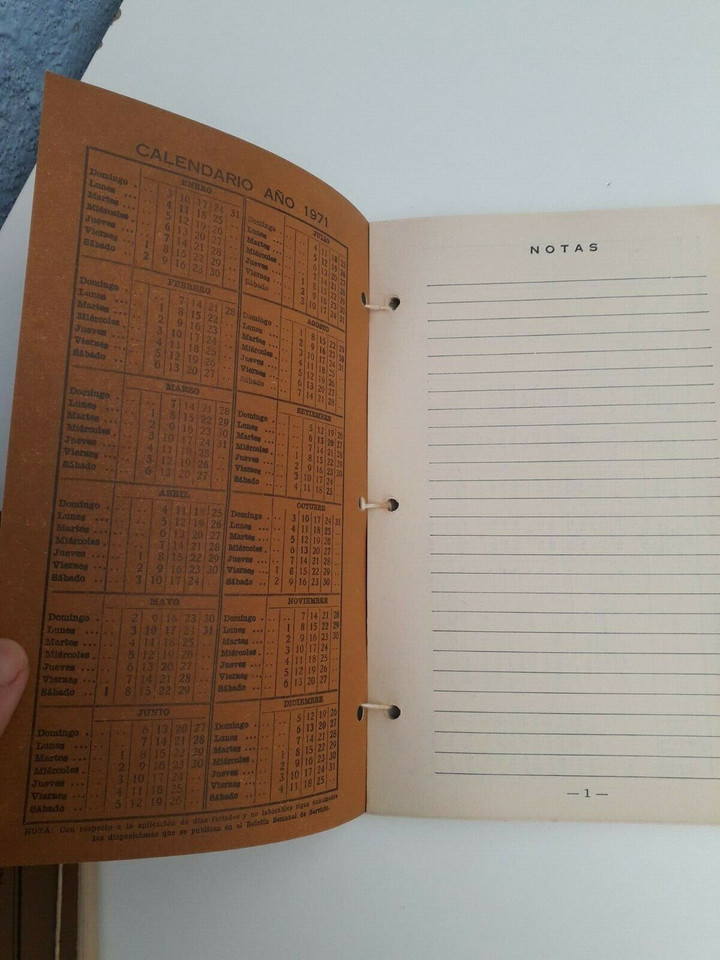 CALENDARIO AÑO 1971
ENERO
Domingo . . . 3 10 17 24 31
Lunes . . . 4 11 18 25 . .
Martes . . . 5 12 19 26 . .
Miércoles . . . 6 13 20 27 . .
Jueves . . . 7 14 21 28 . .
Viernes . . . 1 8 15 22 29 . .
Sábado . . . 2 9 16 23 30 . .
FEBRERO
Domingo . . . 7 14 21 28
Lunes . . . 1 8 15 22 . .
Martes . . . 2 9 16 23 . .
Miércoles . . . 3 10 17 24 . .
Jueves . . . 4 11 18 25 . .
Viernes . . . 5 12 19 26 . .
Sábado . . . 6 13 20 27 . .
MARZO
Domingo . . . 7 14 21 28
Lunes . . . 1 8 15 22 29
Martes . . . 2 9 16 23 30
Miércoles . . . 3 10 17 24 31
Jueves . . . 4 11 18 25 . .
Viernes . . . 5 12 19 26 . .
Sábado . . . 6 13 20 27 . .
ABRIL
Domingo . . . 4 11 18 25
Lunes . . . 5 12 19 26
Martes . . . 6 13 20 27
Miércoles . . . 7 14 21 28
Jueves . . . 1 8 15 22 29
Viernes . . . 2 9 16 23 30
Sábado . . . 3 10 17 24 . .
MAYO
Domingo . . . 2 9 16 23 30
Lunes . . . 3 10 17 24 31
Martes . . . 4 11 18 25 . .
Miércoles . . . 5 12 19 26 . .
Jueves . . . 6 13 20 27 . .
Viernes . . . 7 14 21 28 . .
Sábado . . . 1 8 15 22 29 . .
JUNIO
Domingo . . . 6 13 20 27
Lunes . . . 7 14 21 28
Martes . . . 1 8 15 22 29
Miércoles . . . 2 9 16 23 30
Jueves . . . 3 10 17 24 . .
Viernes . . . 4 11 18 25 . .
Sábado . . . 5 12 19 26 . .
JULIO
Domingo . . . 4 11 18
Lunes . . . 5 12 19
Martes . . . 6 13 20
Miércoles . . . 7 14 21
Jueves . . . 1 8 15 22
Viernes . . . 2 9 16 23
Sábado . . . 3 10 17 24
AGOSTO
Domingo . . . 1 8 15 22 29
Lunes . . . 2 9 16 23 30
Martes . . . 3 10 17 24 31
Miércoles . . . 4 11 18 25 . .
Jueves . . . 5 12 19 26 . .
Viernes . . . 6 13 20 27 . .
Sábado . . . 7 14 21 28 . .
SETIEMBRE
Domingo . . . 5 12 19 26
Lunes . . . 6 13 20 27
Martes . . . 7 14 21 28
Miércoles . . . 1 8 15 22 29
Jueves . . . 2 9 16 23 30
Viernes . . . 3 10 17 24 . .
Sábado . . . 4 11 18 25 . .
OCTUBRE
Domingo . . . 3 10 17 24 31
Lunes . . . 4 11 18 25 . .
Martes . . . 5 12 19 26 . .
Miércoles . . . 6 13 20 27 . .
Jueves . . . 7 14 21 28 . .
Viernes . . . 1 8 15 22 29 . .
Sábado . . . 2 9 16 23 30 . .
NOVIEMBRE
Domingo . . . 7 14 21 28
Lunes . . . 1 8 15 22 29
Martes . . . 2 9 16 23 30
Miércoles . . . 3 10 17 24 . .
Jueves . . . 4 11 18 25 . .
Viernes . . . 5 12 19 26 . .
Sábado . . . 6 13 20 27 . .
DICIEMBRE
Domingo . . . 5 12 19 26
Lunes . . . 6 13 20 27
Martes . . . 7 14 21 28
Miércoles . . . 1 8 15 22 29
Jueves . . . 2 9 16 23 30
Viernes . . . 3 10 17 24 31
Sábado . . . 4 11 18 25 . .
NOTA: Con respecto a la aplicación de días feriados y no laborables sigue
las disposiciones que se publican en el Boletín Semanal de Servicio.
NOTAS
— 1 —